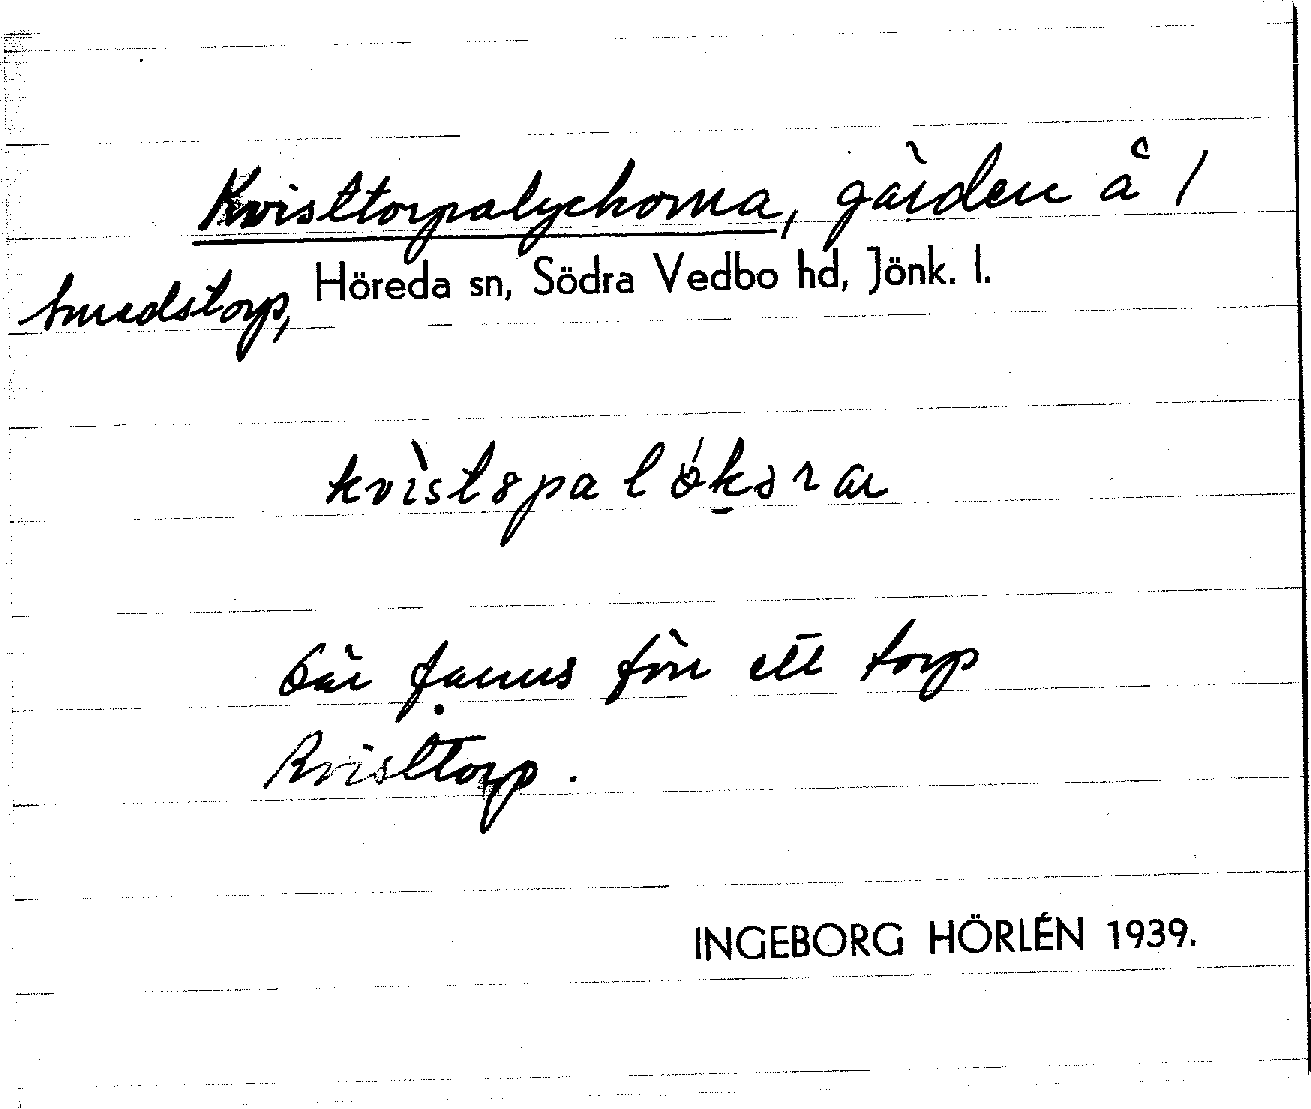 Kvisttorpalyckorna, gärden å 1
Smedstorp, Höreda sn, Södra Vedbo hd, Jönk. l.
Där fanns förr ett torp
Kvisttorp.
INGEBORG HÖRLÉN 1939.